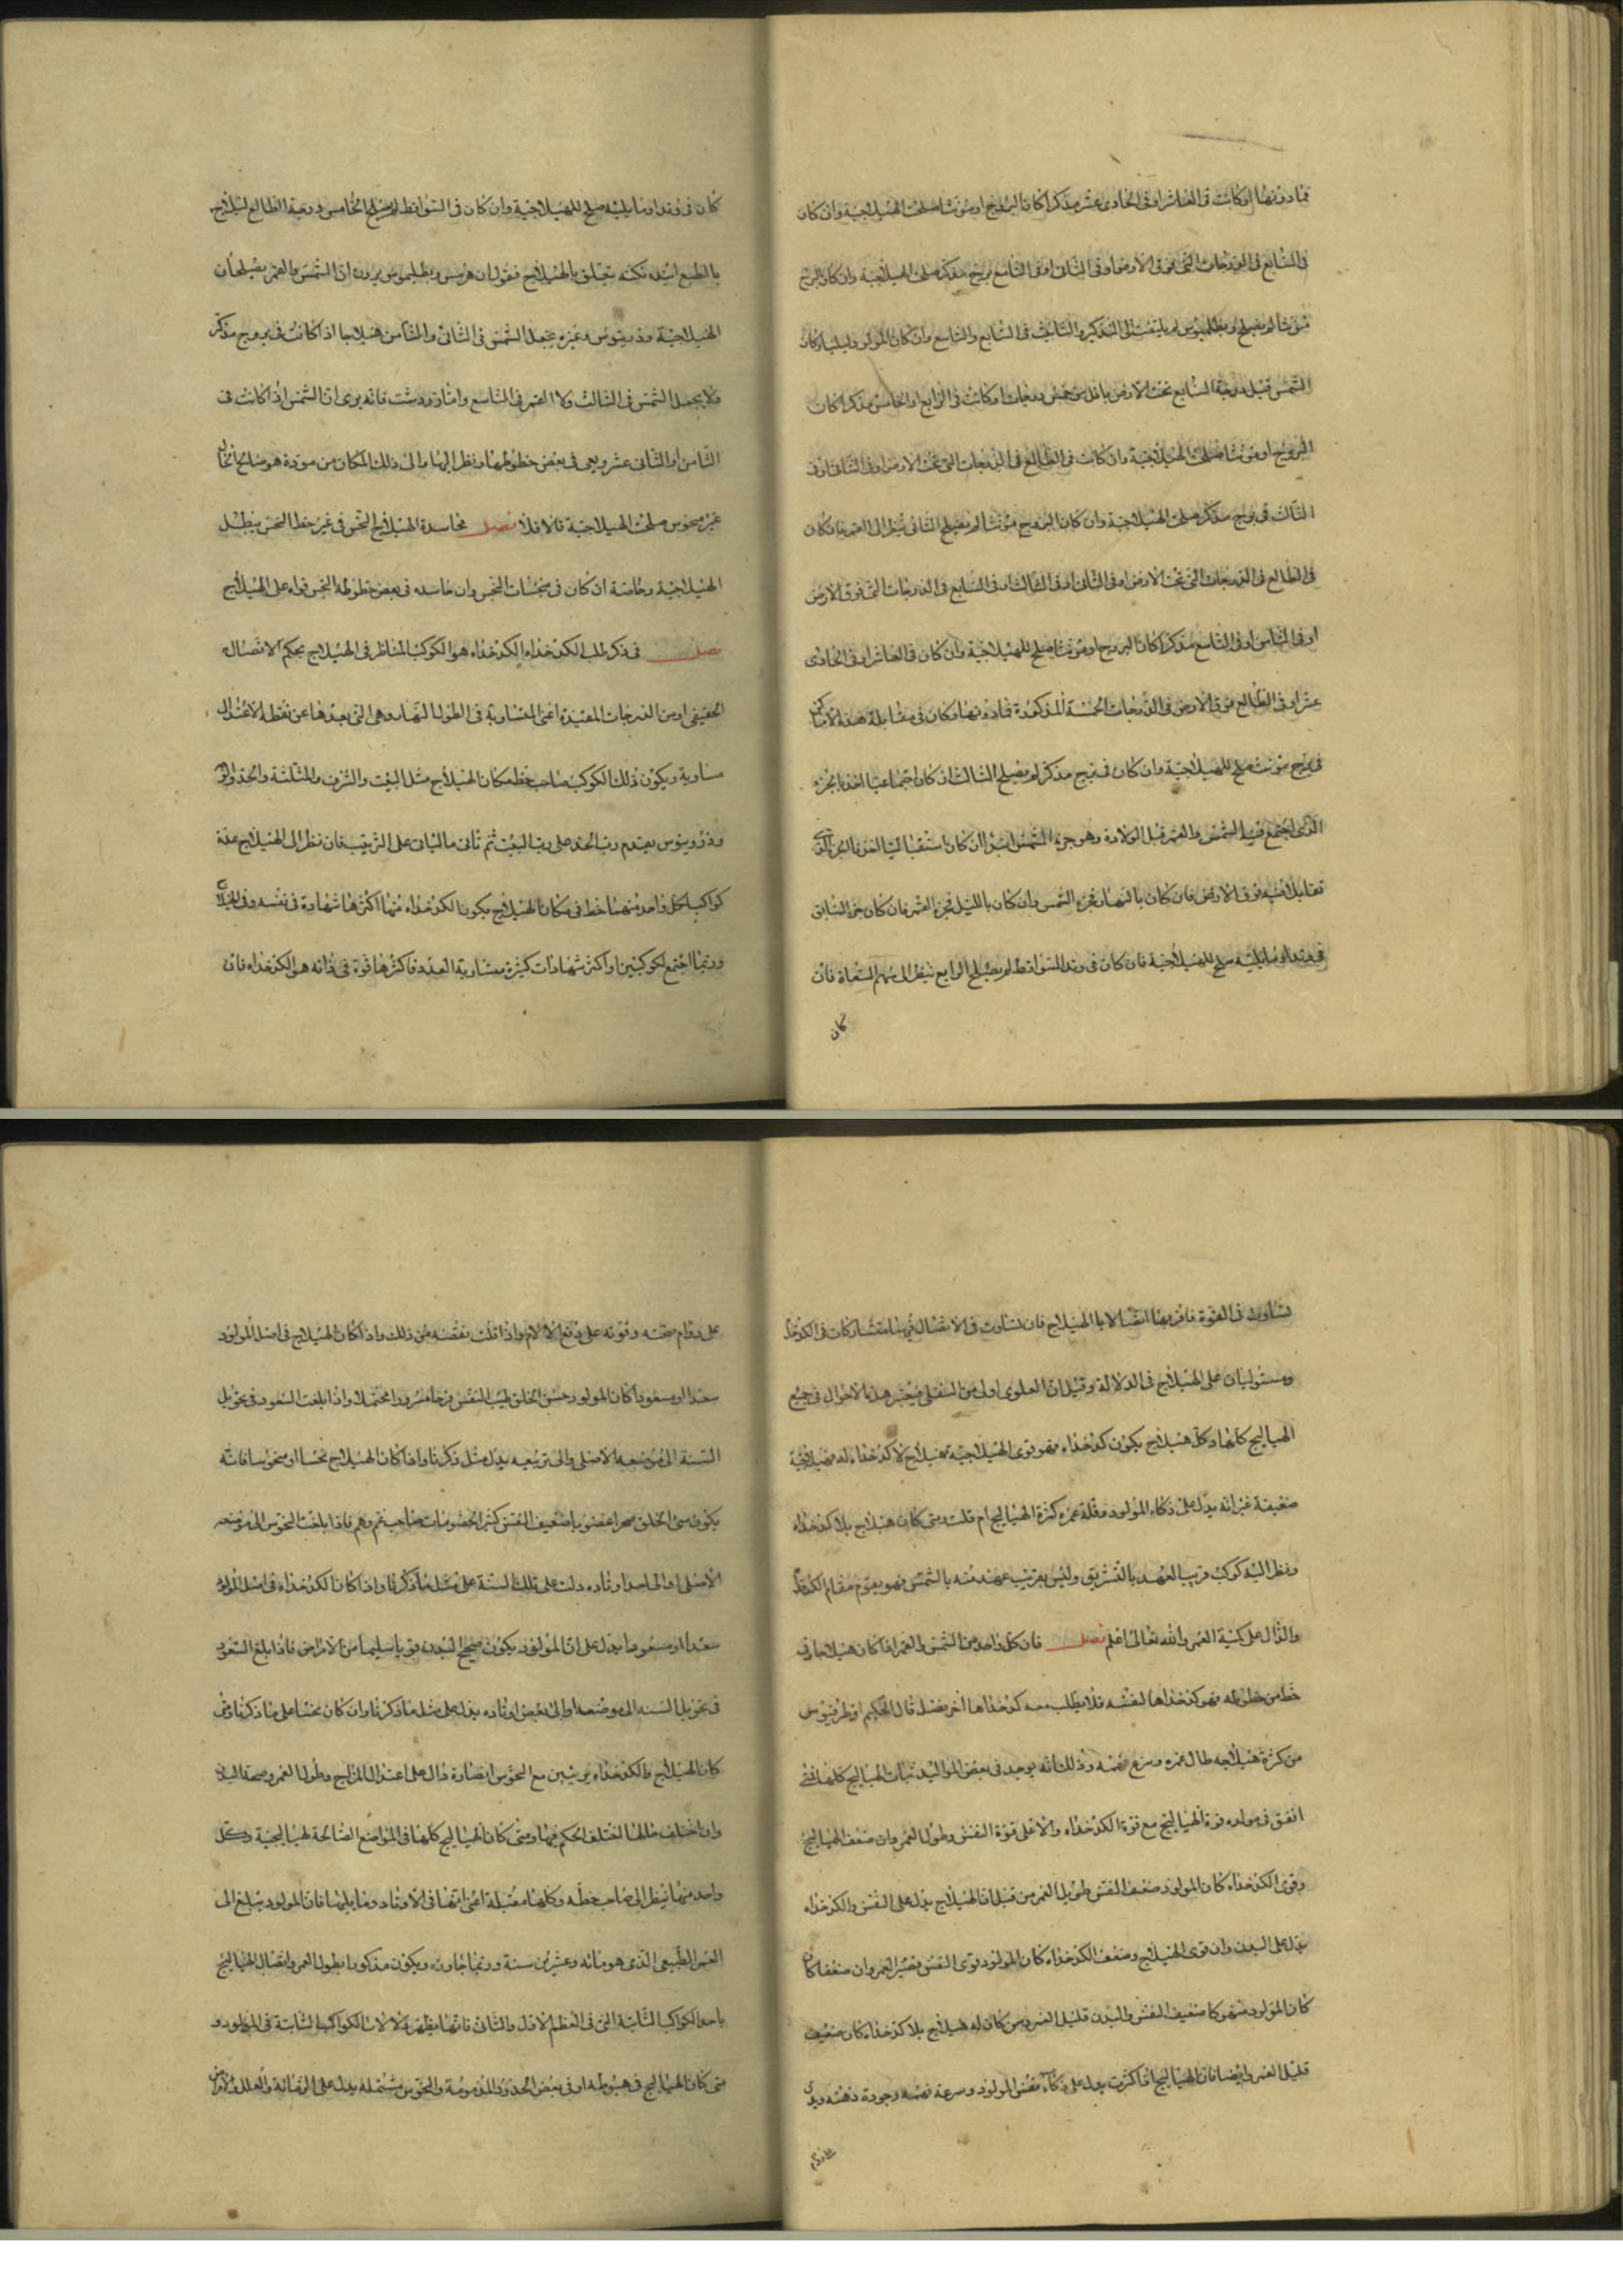 فما دونها او كانت فى العاشر او فى الحادى عشر مذكرا كان البروج او مؤنثا صلحت للهيلاجية وان كان
فى السابع فى الدرجات التى فوق الارض او فى الثامن او فى التاسع برج مذكر صلحت للهيلاجية وان كان البرج
مؤنثا لم يصلح وبطلميوس لم يلتفت الى التذكير والتانيث فى السابع والتاسع وان كان المولود ليليا وكان
الشمس قبل درجة السابع تحت الارض باقل من خمس درجات او كانت فى الرابع او الخامس مذكرا كان
البروج او مؤنثا صلحت للهيلاجية وان كانت فى الطالع فى الدرجات التى تحت الارض او فى الثانى او فى
الثالث فى برج مذكر صلحت للهيلاجية وان كان البروج مؤنثا لم يصلح الثانى ينظر الى القمر فان كان
فى الطالع فى الدرجات التى تحت الارض او فى الثانى او فى الثالث او فى السابع فى الدرجات التى فوق الارض
او فى الثامن او فى التاسع مذكرا كان البروج او مؤنثا صلح للهيلاجية وان كان فى العاشر او فى الحادى
عشر او فى الطالع فوق الارض فى الدرجات الخمسة المذكورة فما دونها وكان فى مقابلة هذه الاماكن
فى برج مؤنث صلح للهيلاجية وان كان فى برج مذكر لم يصلح الثالث ان كان اجتماعيا اخذنا بجزء
الذى اجتمع فيه الشمس والقمر قبل الولادة وهو جزء الشمس ابدا ان كان استقباليا الجزء الذى
تقابلا فيه فوق الارض فان كان بالنهار فجزء الشمس وان كان بالليل فجزء القمر فان كان جزء السابق
فى وتد او ما يليه صلح للهيلاجية فان كان فى وتد السواقط لم يصلح الرابع ينظر الى سهم السعادة فان
كان
كان فى وتد او ما يليه صلح للهيلاجية وان كان فى السواقط لم يصلح الخامس درجة الطالع ليلاج
بالطبع نكته يتعلق بالهيلاج فنقول ان هرمس وبطلميوس يرون ان الشمس والقمر يصلحان
الهيلاجية وذريثوس وغيره يجعل الشمس فى الثانى والثامن هيلاجا اذا كانت فى بروج مذكر
ولا يجعل الشمس فى الثالث ولا القمر فى التاسع واما زردشت فانه يرى ان الشمس اذا كانت فى
الثامن او الثانى عشر وهى فى بعض حظوظها ونظر اليها والى ذلك المكان من مودة هو صالح الحال
غير منحوس صلحت للهيلاجية والا فلا فصل مجاسدة الهيلاج النحس فى غير حظ النحس يبطل
الهيلاجية وخاصة ان كان فى نحسات النحس وان جاسده فى بعض حظوظه النحس قواه على الهيلاج
فصل فى ذكر طلب الكدخداه الكدخداه هو الكوكب المناظر فى الهيلاج بحكم الاتصال
الحقيقى او من الدرجات المقتدرة اعنى المتساوية فى الطول النهار وهى التى بعدها عن نقطة الاعتدال
مساوية ويكون ذلك الكوكب صاحب حظ مكان الهيلاج مثل البيت والشرف والمثلثة والحد والوجه
وذوروثيوس يقدم رب الحد على رب البيت ثم ثانى ماليان على الترتيب فان نظر الى الهيلاج عدة
كواكب لكل واحد منها حظ فى مكان الهيلاج يكون الكدخداه منها اكثرها شهادة فى نفسه وفى الهيلاج
وربما اجتمع لكوكبين او اكثر شهادات كثيرة متساوية العدد فاكثرها قوة فى ذاته هو الكدخداه فان
تساوت فى القوة فاقربها اتصالا بالهيلاج فان تساوت فى الاتصال فهما متشاركان فى الكدخداه
ومستوليان على الهيلاج فى الدلالة وقيل ان العلوى اولى من السفلى فيعتبر هذه الاحوال فى جميع
الهياليج كلها وكل هيلاج يكون كدخداه فهو قوى الهيلاجية فهيلاج لا كدخداه له فهيلاجية
ضعيفة غير انه يدل على ذكاء المولود وقلة عمره كثرة الهياليج ام قلت ومتى كان هيلاج بلا كدخداه
ونظر اليه كوكب قريب العهد بالتشريق وليس بقريب عهد منه بالشمس فهو يقوم مقام الكدخداه
والدال على كمية العمر والله تعالى اعلم فصل فان كل واحد من الشمس والقمر اذا كان هيلاجا وفى
حظ من حظوظه فهو كدخداها لنفسه فلا يطلب معه كدخداها آخر فصل قال الحكيم اوطرقيوس
من كثرة هيلاجه طال عمره وسرع فهمه وذلك انه يوجد فى بعض المواليد ثبات الهياليج كلها فمتى
اتفق فى مولده قوة الهياليج مع قوة الكدخداه والا على قوة النفس وطول العمر وان ضعف الهياليج
وقوى الكدخداه كان المولود ضعيف النفس طويل العمر من قبل ان الهيلاج يدل على النفس والكدخداه
يدل على البدن وان قوى الهيلاج وضعف الكدخداه كان المولود قوى النفس قصير العمر وان ضعفا كان
كان المولود منهوكا ضعيف النفس والبدن قليل العمر ومن كان له هيلاج بلا كدخداه كان ضعيف
قليل العمر وايضا فان الهياليج اذا كثرت يدل على ذكاء نفس المولود وسرعة فهمه وجودة ذهنه ويدل
على دوام
على دوام صحته وقوته على دفع الآلام واذا قلت نقصه من ذلك واذا كان الهيلاج فى اصل المولود
سعدا او مسعودا كان المولود حسن الخلق طيب النفس فرحا مسرورا محتملا واذا بلغت السعود فى تحويل
السنة الى موضعه الاصلى والى تربيعه يدل مثل ذكرنا واذا كان الهيلاج نحسا او منحوسا فانه
يكون سئ الخلق ضعيف النفس كثير الخصومات صاحب غم وهم فاذا بلغت النحوس الى موضعه
الاصلى او الى احد اوتاده دلت على تلك السنة على مثل ما ذكرنا واذا كان الكدخداه فى اصل المولود
سعدا او مسعودا يدل على ان المولود يكون صحيح البدن قويا سليما من الامراض فاذا بلغ السعود
فى تحويل السنه الى موضعه او الى بعض اوتاده يدل على مثل ما ذكرنا وان كان نحسا على ما ذكرنا ومتى
كان الهيلاج والكدخداه بريئين مع النحوس دال على اعتدال المزاج وطول العمر وصحة البدن
وان اختلف حالها اختلف الحكم فيها ومتى كان الهياليج كلها فى المواضع الصالحة لهياليجية وكل
واحد منها ينظر الى صاحب حظه وكلها مقبلة اعنى انها فى الاوتاد وما يليها فان المولود يبلغ الى
العمر الطبيعى الذى هو مائه وعشرين سنة وربما جاوزه ويكون مذكورا بطول العمر واتصال الهياليج
باحد الكواكب الثابتة التى فى العظم الاول والثانى فانها يظهر دلالات الكواكب الثابتة فى المولود و
متى كان الهياليج فى هبوطه او فى بعض الحدود المذمومة والنحوس مشتمله يدل على الزمانة والعلل والامراض